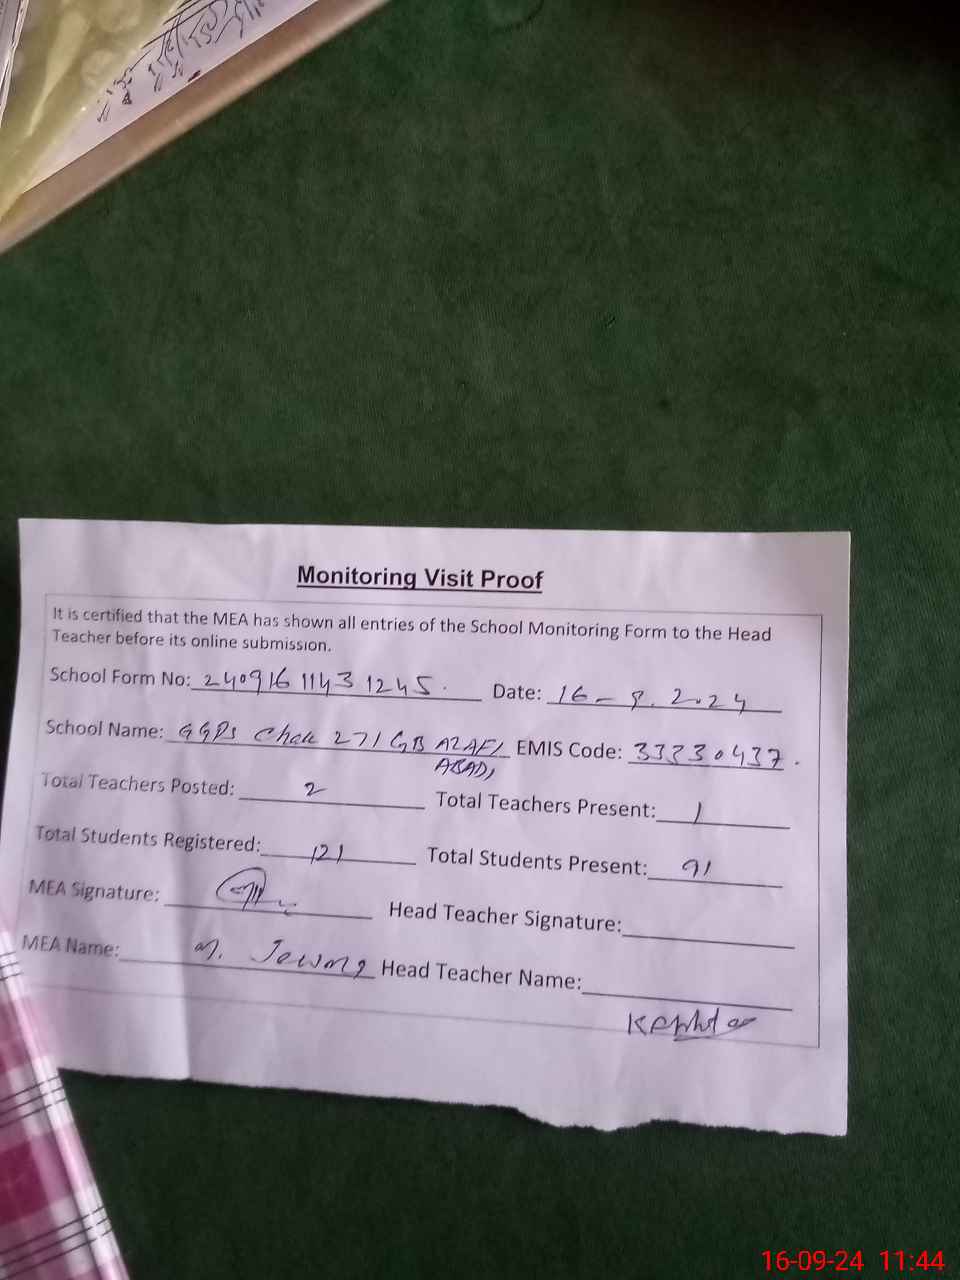 Monitoring Visit Proof
It is certified that the MEA has shown all entries of the School Monitoring Form to the Head
Teacher before its online submission.
School Form No: 240916 1143 1245. Date: 16-9.2024
School Name: GGPS Chak 271 GB AZAFI EMIS Code: 33330437.
ABADI
Total Teachers Posted: 2 Total Teachers Present: 1
Total Students Registered: 121 Total Students Present: 91
MEA Signature: Head Teacher Signature:
MEA Name: M. Head Teacher Name:
16-09-24 11:44